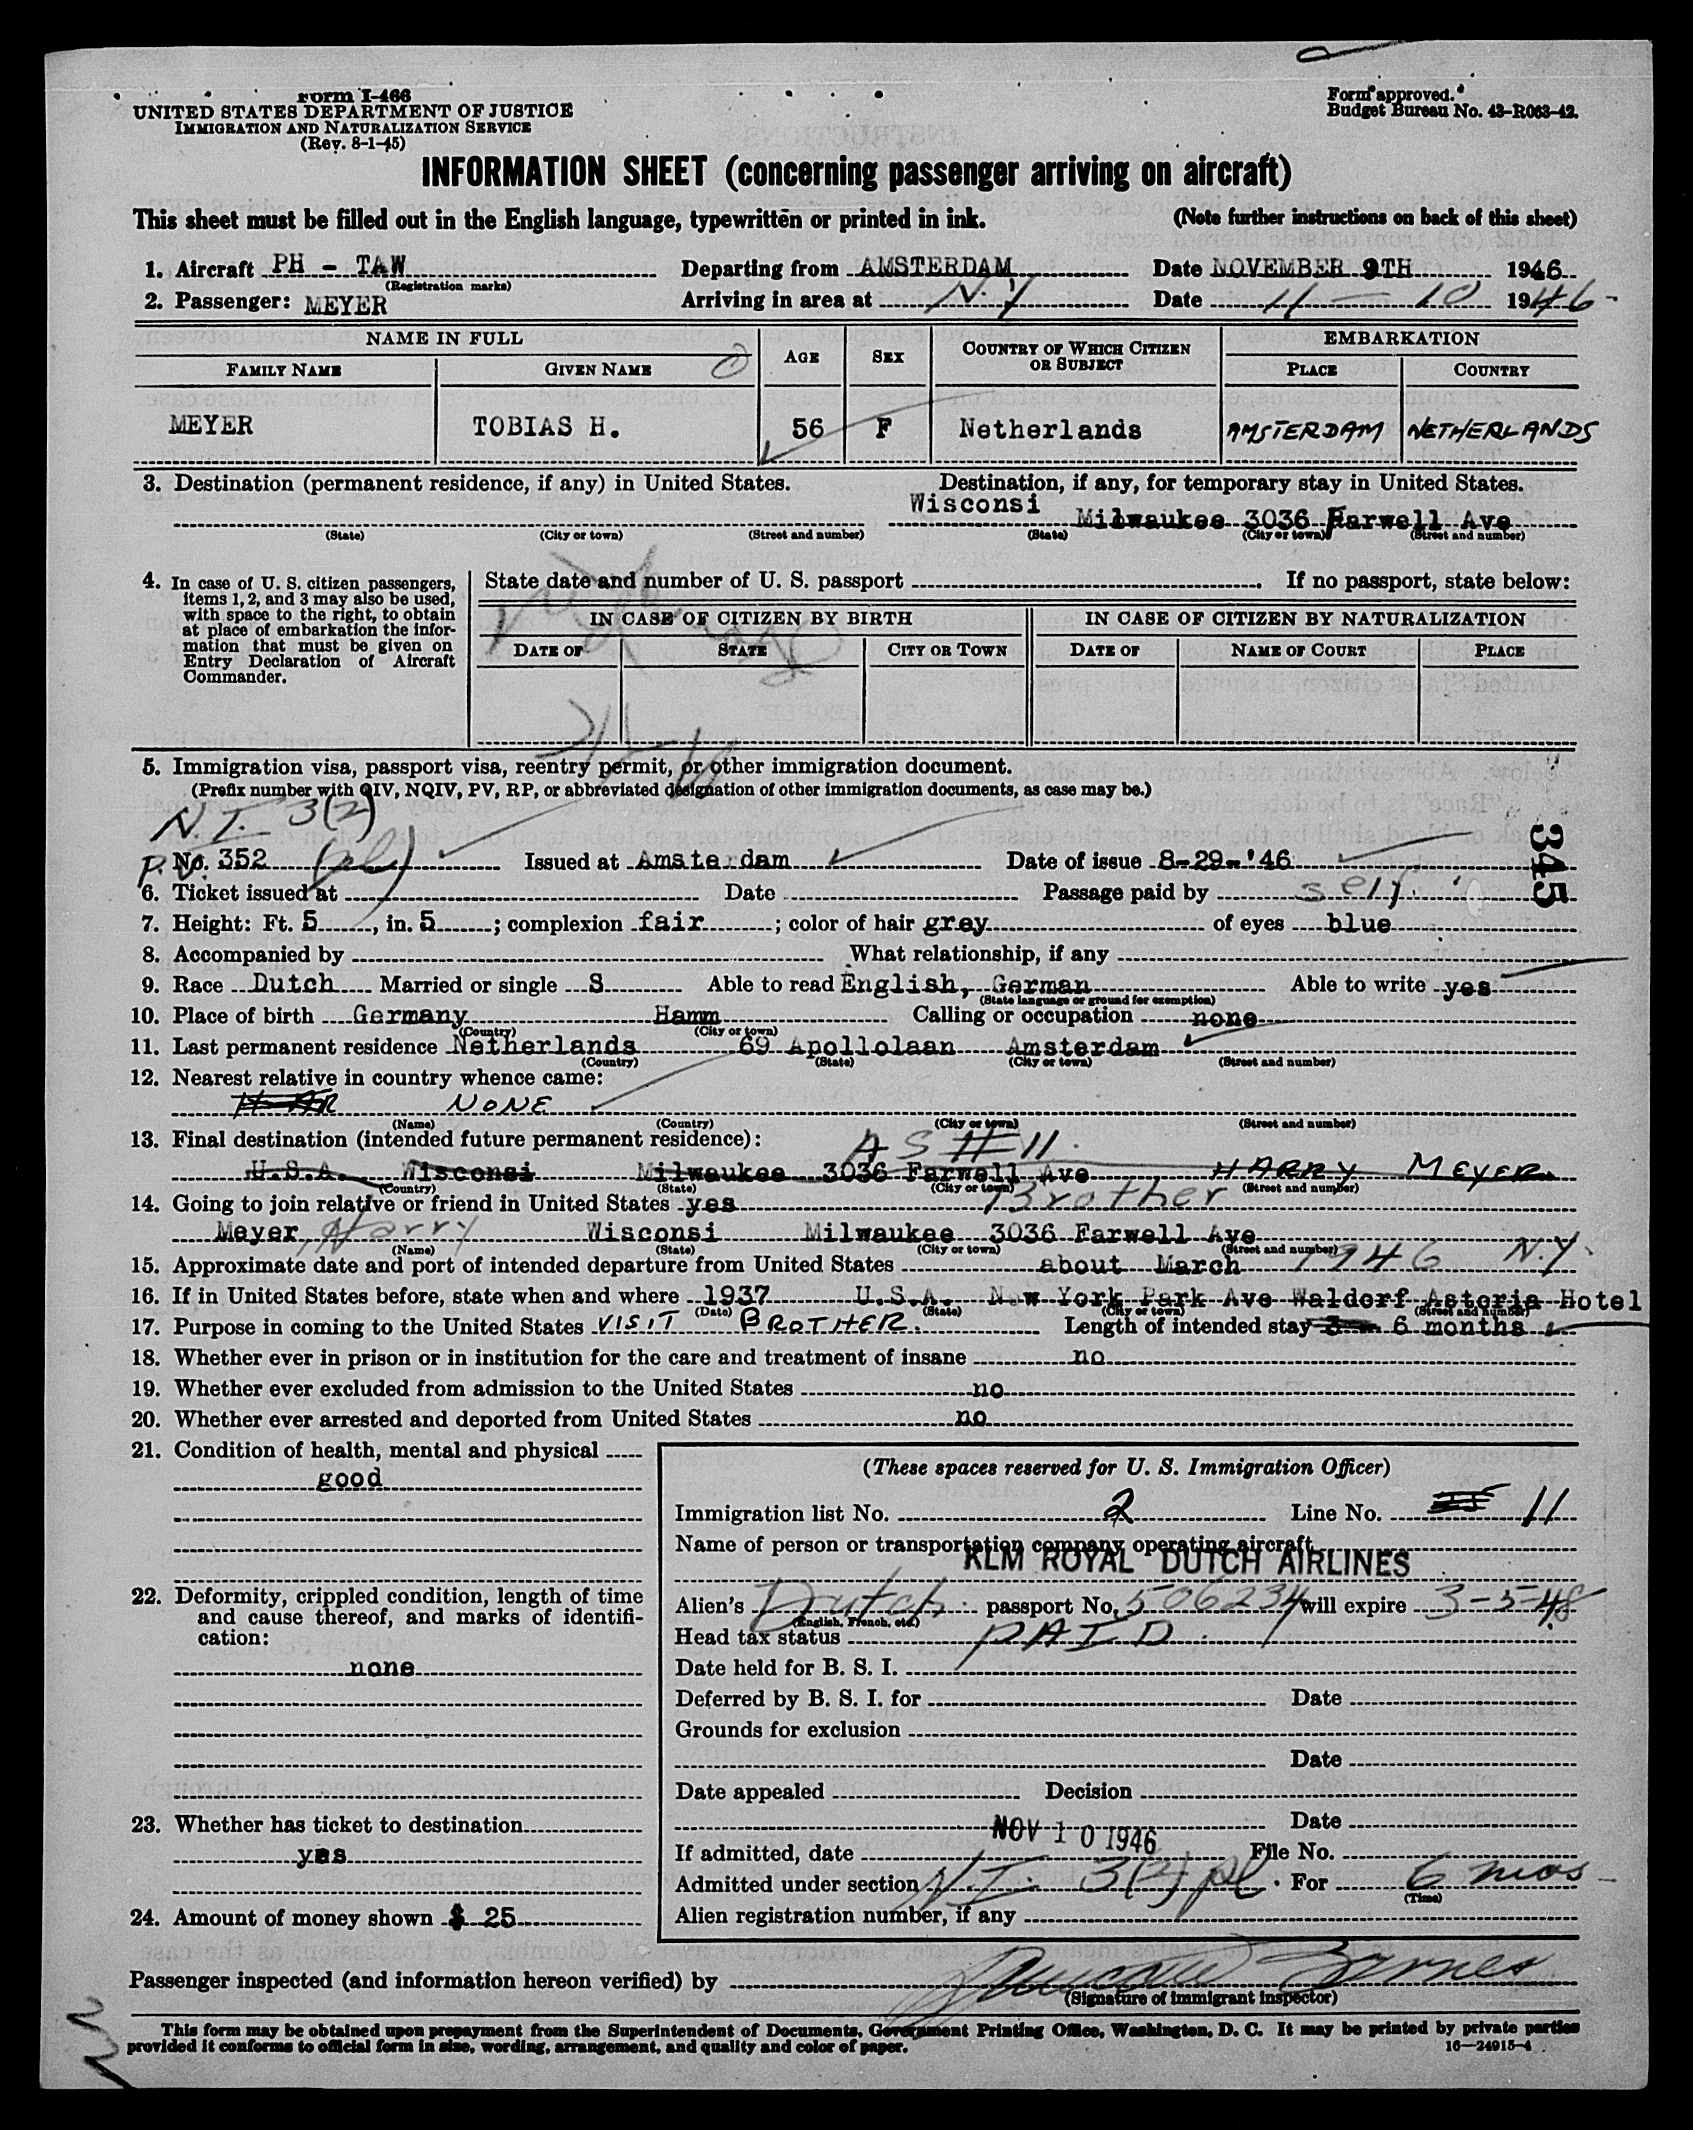 Form I-466
UNITED STATES DEPARTMENT OF JUSTICE
IMMIGRATION AND NATURALIZATION SERVICE
(Rev. 8-1-45)
Form approved.
Budget Bureau No. 43-R063-42.
INFORMATION SHEET (concerning passenger arriving on aircraft)
This sheet must be filled out in the English language, typewritten or printed in ink. (Note further instructions on back of this sheet)
1. Aircraft PH - TAW Departing from AMSTERDAM Date NOVEMBER 9TH 1946
(Registration marks)
2. Passenger: MEYER Arriving in area at N.Y Date 11 - 10 1946-
NAME IN FULL AGE SEX COUNTRY OF WHICH CITIZEN OR SUBJECT EMBARKATION
FAMILY NAME GIVEN NAME PLACE COUNTRY
MEYER TOBIAS H. 56 F Netherlands AMSTERDAM NETHERLANDS
3. Destination (permanent residence, if any) in United States. Destination, if any, for temporary stay in United States.
Wisconsi Milwaukee 3036 Farwell Ave
(State) (City or town) (Street and number) (State) (City or town) (Street and number)
4. In case of U. S. citizen passengers, items 1, 2, and 3 may also be used, with space to the right, to obtain at place of embarkation the information that must be given on Entry Declaration of Aircraft Commander.
State date and number of U. S. passport If no passport, state below:
IN CASE OF CITIZEN BY BIRTH IN CASE OF CITIZEN BY NATURALIZATION
DATE OF STATE CITY OR TOWN DATE OF NAME OF COURT PLACE
5. Immigration visa, passport visa, reentry permit, or other immigration document.
(Prefix number with QIV, NQIV, PV, RP, or abbreviated designation of other immigration documents, as case may be.)
N.I. 3(2)
P.V. No. 352 (pl) Issued at Amsterdam Date of issue 8-29-'46
345
6. Ticket issued at Date Passage paid by self
7. Height: Ft. 5, in. 5; complexion fair; color of hair grey of eyes blue
8. Accompanied by What relationship, if any
9. Race Dutch Married or single S Able to read English, German Able to write yes
(State language or ground for exemption)
10. Place of birth Germany Hamm Calling or occupation none
(Country) (City or town)
11. Last permanent residence Netherlands 69 Apollolaan Amsterdam
(Country) (State) (City or town) (Street and number)
12. Nearest relative in country whence came:
NONE
(Name) (Country) (City or town) (Street and number)
13. Final destination (intended future permanent residence): AS # 11
U.S.A. Wisconsi Milwaukee 3036 Farwell Ave HARRY MEYER
(Country) (State) (City or town) (Street and number)
14. Going to join relative or friend in United States yes Brother
Meyer, Harry Wisconsi Milwaukee 3036 Farwell Ave
(Name) (State) (City or town) (Street and number)
15. Approximate date and port of intended departure from United States about March 1946 N.Y.
16. If in United States before, state when and where 1937 U.S.A. New York Park Ave Waldorf Astoria Hotel
(Date) (State) (City or town) (Street and number)
17. Purpose in coming to the United States VISIT BROTHER. Length of intended stay 3 6 months
18. Whether ever in prison or in institution for the care and treatment of insane no
19. Whether ever excluded from admission to the United States no
20. Whether ever arrested and deported from United States no
21. Condition of health, mental and physical
good
22. Deformity, crippled condition, length of time and cause thereof, and marks of identification:
none
23. Whether has ticket to destination
yes
24. Amount of money shown $ 25
(These spaces reserved for U. S. Immigration Officer)
Immigration list No. 2 Line No. 11
Name of person or transportation company operating aircraft
KLM ROYAL DUTCH AIRLINES
Alien's Dutch passport No. 506234 will expire 3-5-48
(English, French, etc.)
Head tax status PAID.
Date held for B. S. I.
Deferred by B. S. I. for Date
Grounds for exclusion
Date
Date appealed Decision
Date
If admitted, date NOV 10 1946 File No.
Admitted under section N.I. 3(2) pl. For 6 mos
(Time)
Alien registration number, if any
Passenger inspected (and information hereon verified) by
(Signature of immigrant inspector)
This form may be obtained upon prepayment from the Superintendent of Documents, Government Printing Office, Washington, D. C. It may be printed by private parties
provided it conforms to official form in size, wording, arrangement, and quality and color of paper. 16—24915-4